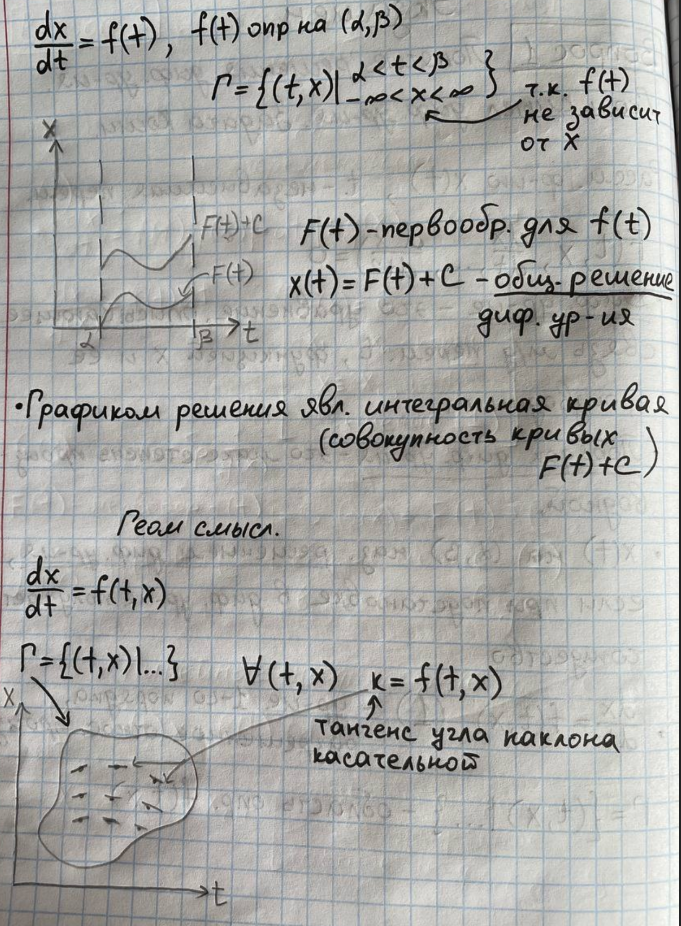 dx/dt = f(t), f(t) опр на (α, β)
Γ = {(t,x) | α < t < β, -∞ < x < ∞}
т.к. f(t)
не зависит
от x
x
F(t)+C
F(t)
α
β
t
F(t) - первообр. для f(t)
x(t) = F(t) + C - общ. решение
диф. ур-ия
• Графиком решения явл. интегральная кривая
(совокупность кривых
F(t)+C)
Геом смысл.
dx/dt = f(t,x)
Γ = {(t,x) | ...} ∀(t,x) к = f(t,x)
тангенс угла наклона
касательной
x
t